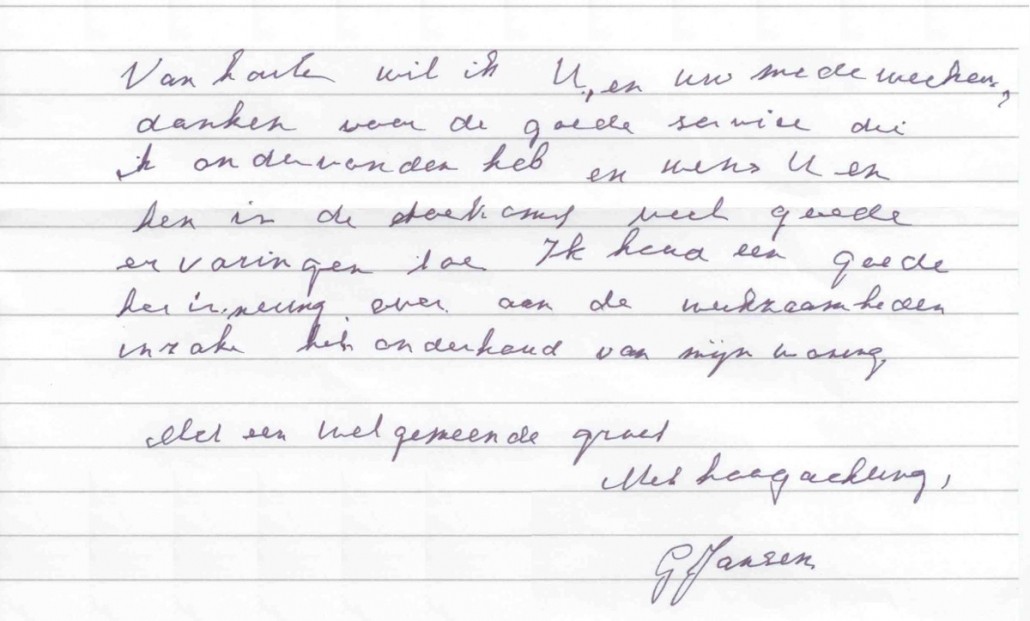 Van harte wil ik U, en uw medewerkers,
danken voor de goede service die
ik ondervonden heb en wens U en
hen in de toekomst veel goede
ervaringen toe Ik houd een goede
herinnering over aan de werkzaamheden
inzake het onderhoud van mijn woning.
Met een welgemeende groet
Met hoogachting,
G Jansen